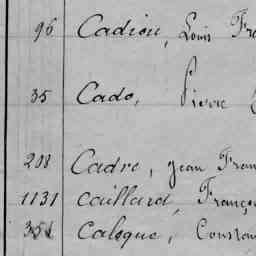 96 Cadiou, Louis Fra
35 Cado, Pierre
208 Cadre, Jean Fran
1131 Caillard, Franço
351 Caloque, Constan